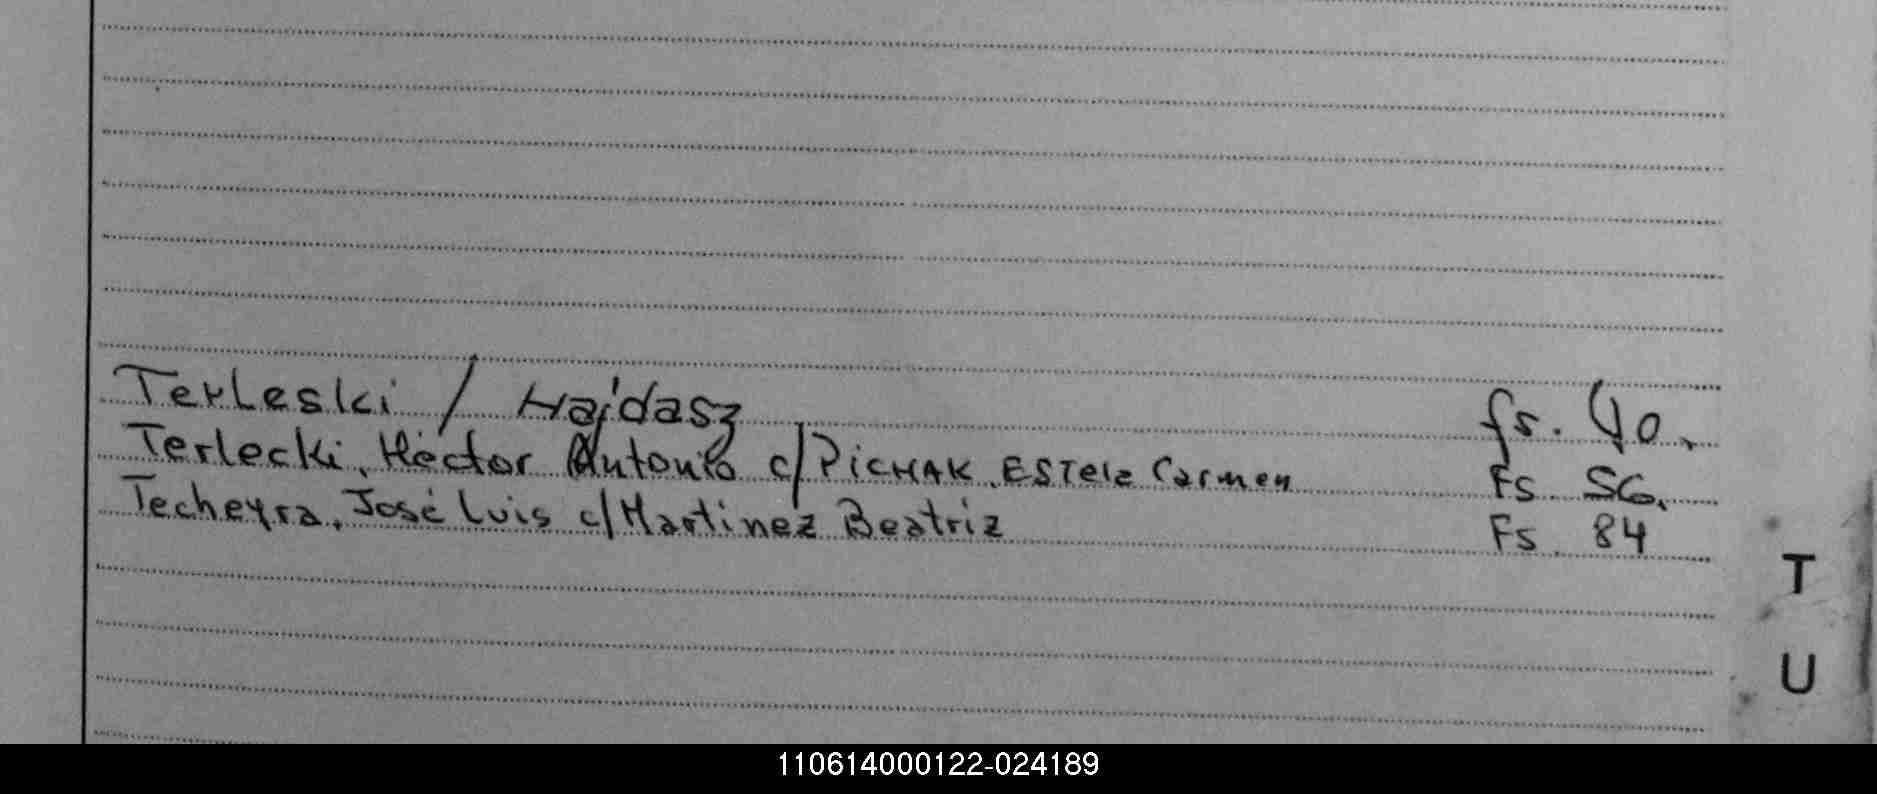 Terleski / Hajdasz fs. 40.
Terlecki, Héctor Antonio c/ PiCHAK, ESTela Carmen Fs. 56.
Techeyra, José Luis c/ Martinez Beatriz Fs. 84
T
U
110614000122-024189